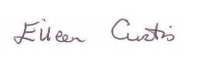 Eileen Curtis